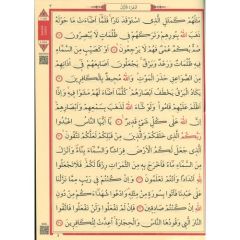 مَثَلُهُمْ كَمَثَلِ الَّذِي اسْتَوْقَدَ نَارًا فَلَمَّا أَضَاءَتْ مَا حَوْلَهُ
ذَهَبَ اللَّهُ بِنُورِهِمْ وَتَرَكَهُمْ فِي ظُلُمَاتٍ لَا يُبْصِرُونَ
صُمٌّ بُكْمٌ عُمْيٌ فَهُمْ لَا يَرْجِعُونَ أَوْ كَصَيِّبٍ مِنَ السَّمَاءِ
فِيهِ ظُلُمَاتٌ وَرَعْدٌ وَبَرْقٌ يَجْعَلُونَ أَصَابِعَهُمْ فِي آذَانِهِمْ
مِنَ الصَّوَاعِقِ حَذَرَ الْمَوْتِ وَاللَّهُ مُحِيطٌ بِالْكَافِرِينَ
يَكَادُ الْبَرْقُ يَخْطَفُ أَبْصَارَهُمْ كُلَّمَا أَضَاءَ لَهُمْ مَشَوْا فِيهِ
وَإِذَا أَظْلَمَ عَلَيْهِمْ قَامُوا وَلَوْ شَاءَ اللَّهُ لَذَهَبَ بِسَمْعِهِمْ وَأَبْصَارِهِمْ
إِنَّ اللَّهَ عَلَى كُلِّ شَيْءٍ قَدِيرٌ يَا أَيُّهَا النَّاسُ اعْبُدُوا
رَبَّكُمُ الَّذِي خَلَقَكُمْ وَالَّذِينَ مِنْ قَبْلِكُمْ لَعَلَّكُمْ تَتَّقُونَ
الَّذِي جَعَلَ لَكُمُ الْأَرْضَ فِرَاشًا وَالسَّمَاءَ بِنَاءً وَأَنْزَلَ
مِنَ السَّمَاءِ مَاءً فَأَخْرَجَ بِهِ مِنَ الثَّمَرَاتِ رِزْقًا لَكُمْ فَلَا تَجْعَلُوا
لِلَّهِ أَنْدَادًا وَأَنْتُمْ تَعْلَمُونَ وَإِنْ كُنْتُمْ فِي رَيْبٍ مِمَّا نَزَّلْنَا
عَلَى عَبْدِنَا فَأْتُوا بِسُورَةٍ مِنْ مِثْلِهِ وَادْعُوا شُهَدَاءَكُمْ مِنْ دُونِ
اللَّهِ إِنْ كُنْتُمْ صَادِقِينَ فَإِنْ لَمْ تَفْعَلُوا وَلَنْ تَفْعَلُوا فَاتَّقُوا
النَّارَ الَّتِي وَقُودُهَا النَّاسُ وَالْحِجَارَةُ أُعِدَّتْ لِلْكَافِرِينَ